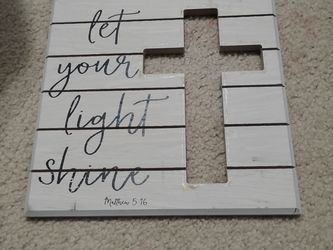 let
your
light
shine
Matthew 5:16